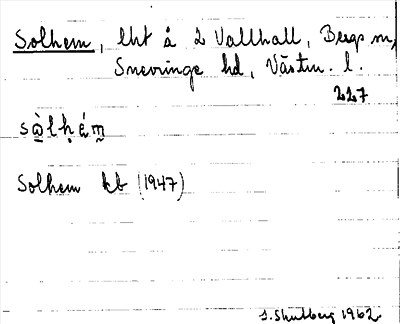 Solhem, lht å 2 Vallhall, Bergs sn,
Snevringe hd, Västm. l.
227
sὼlḥém̰
Solhem kb (1947)
1962